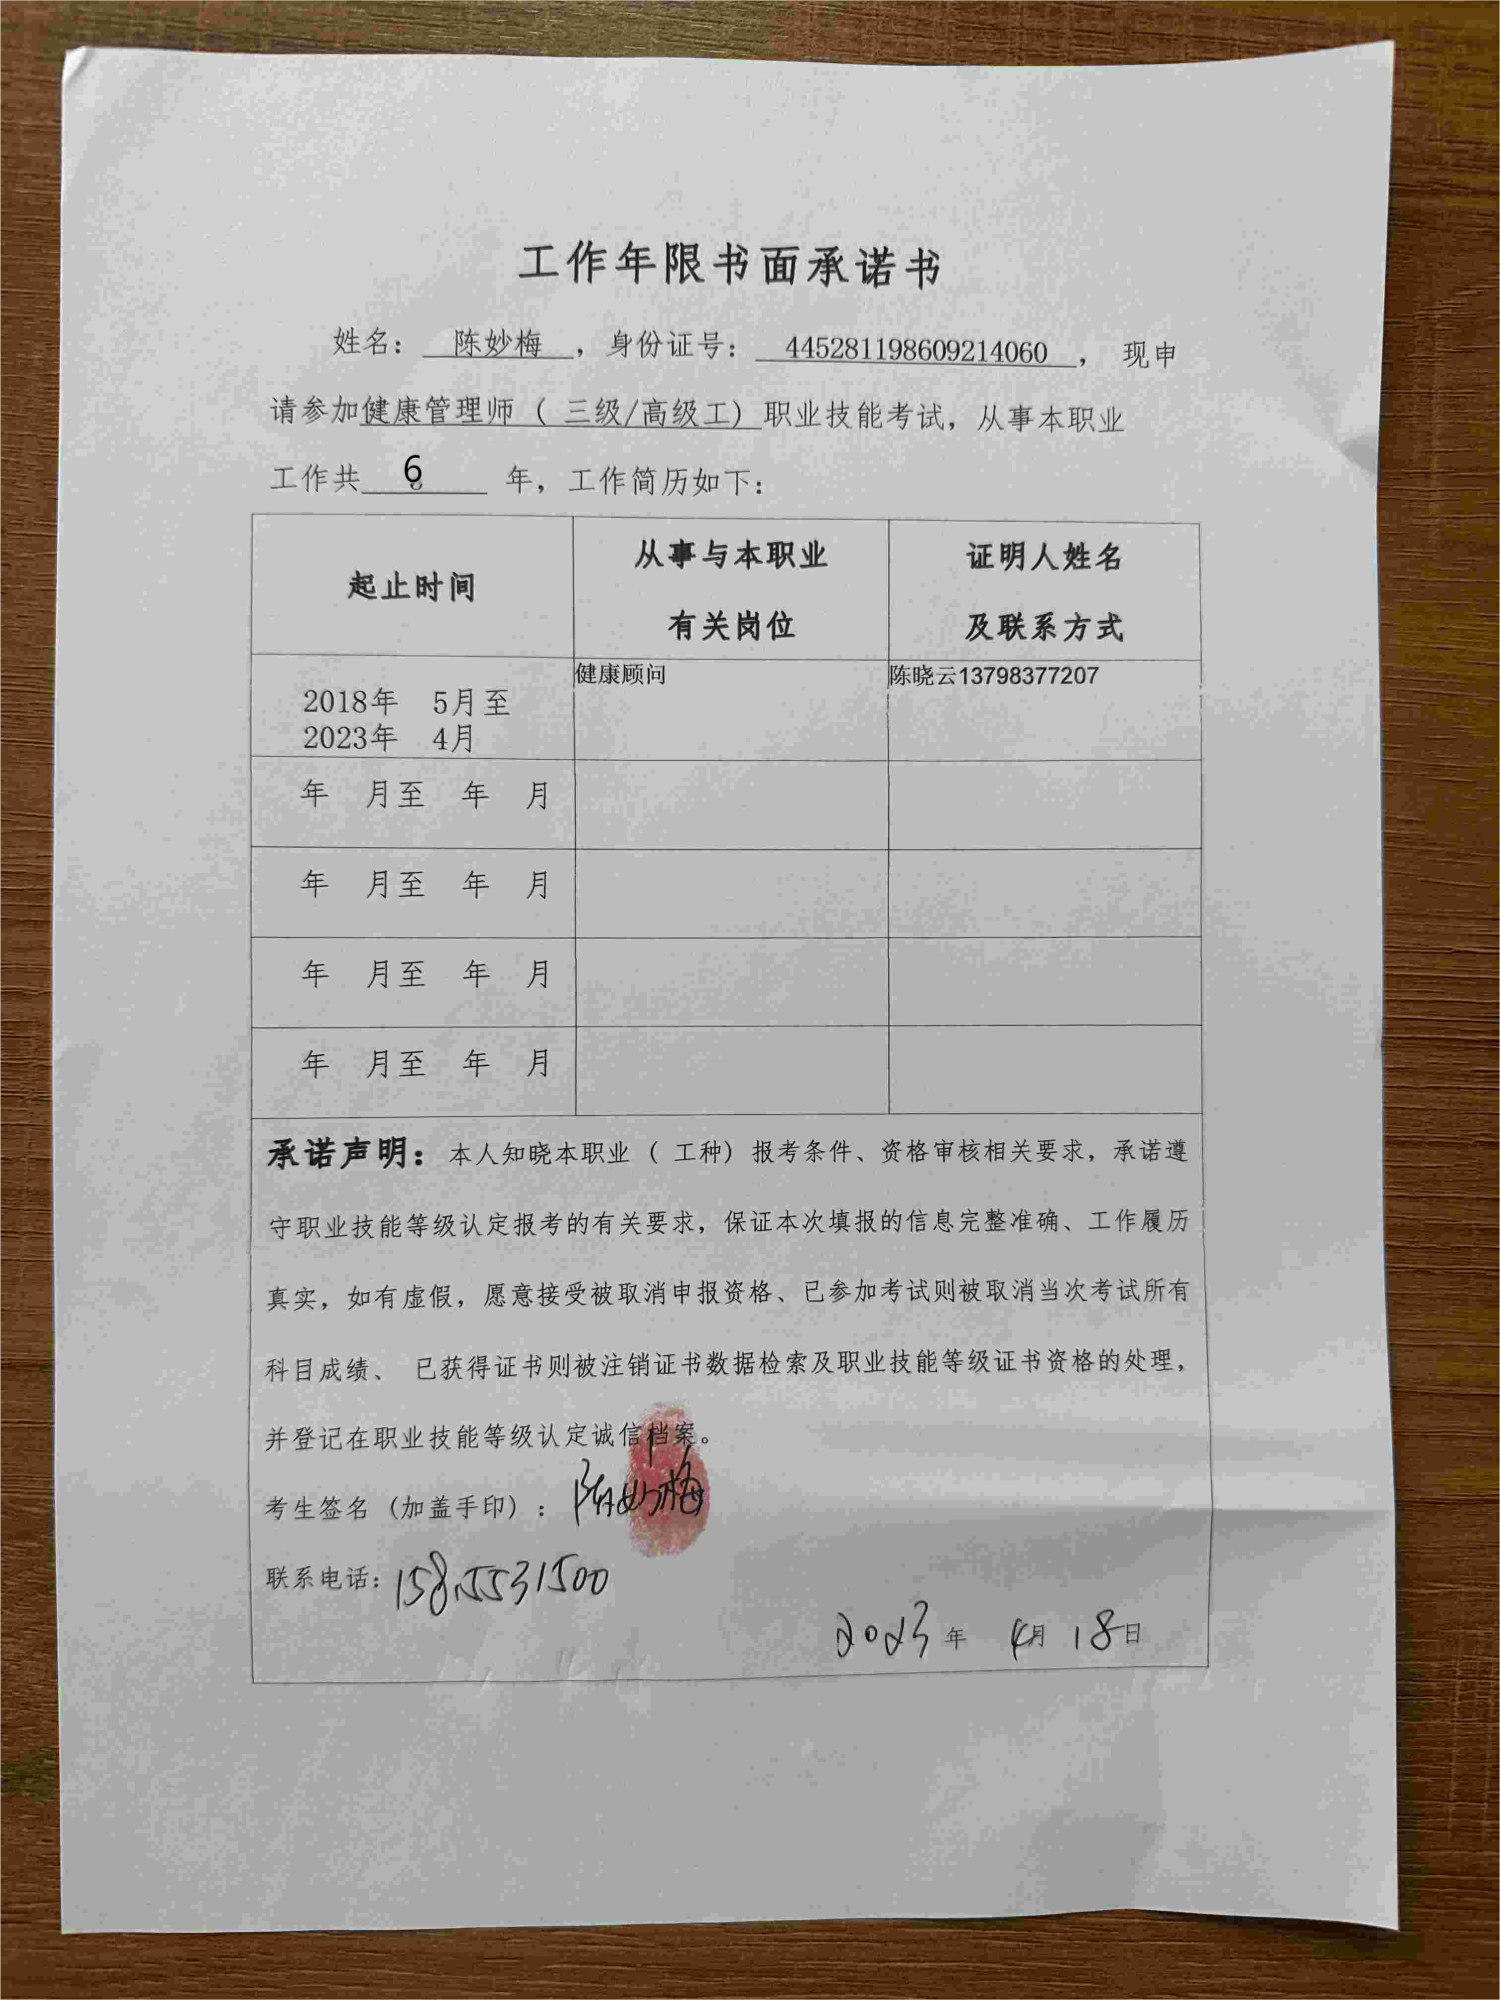 工作年限书面承诺书
姓名： 陈妙梅 ，身份证号： 445281198609214060 ， 现申
请参加健康管理师（ 三级/高级工）职业技能考试，从事本职业
工作共 6 年，工作简历如下：
起止时间
从事与本职业
有关岗位
证明人姓名
及联系方式
2018年 5月至
2023年 4月
健康顾问
陈晓云13798377207
年 月至 年 月
年 月至 年 月
年 月至 年 月
年 月至 年 月
承诺声明：本人知晓本职业（ 工种）报考条件、资格审核相关要求，承诺遵
守职业技能等级认定报考的有关要求，保证本次填报的信息完整准确、工作履历
真实，如有虚假，愿意接受被取消申报资格、已参加考试则被取消当次考试所有
科目成绩、 已获得证书则被注销证书数据检索及职业技能等级证书资格的处理，
并登记在职业技能等级认定诚信档案。
考生签名（加盖手印）：陈妙梅
联系电话：15815531500
2023年 4月 18日